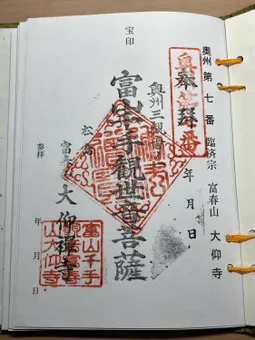 奥州 第七番 臨済宗 富春山 大仰寺
奉拝
年 月 日
奥州三観音
富山千手觀世音菩薩
宝印
松島
大仰禅寺
参拝 年 月 日
富山千手
山大仰寺